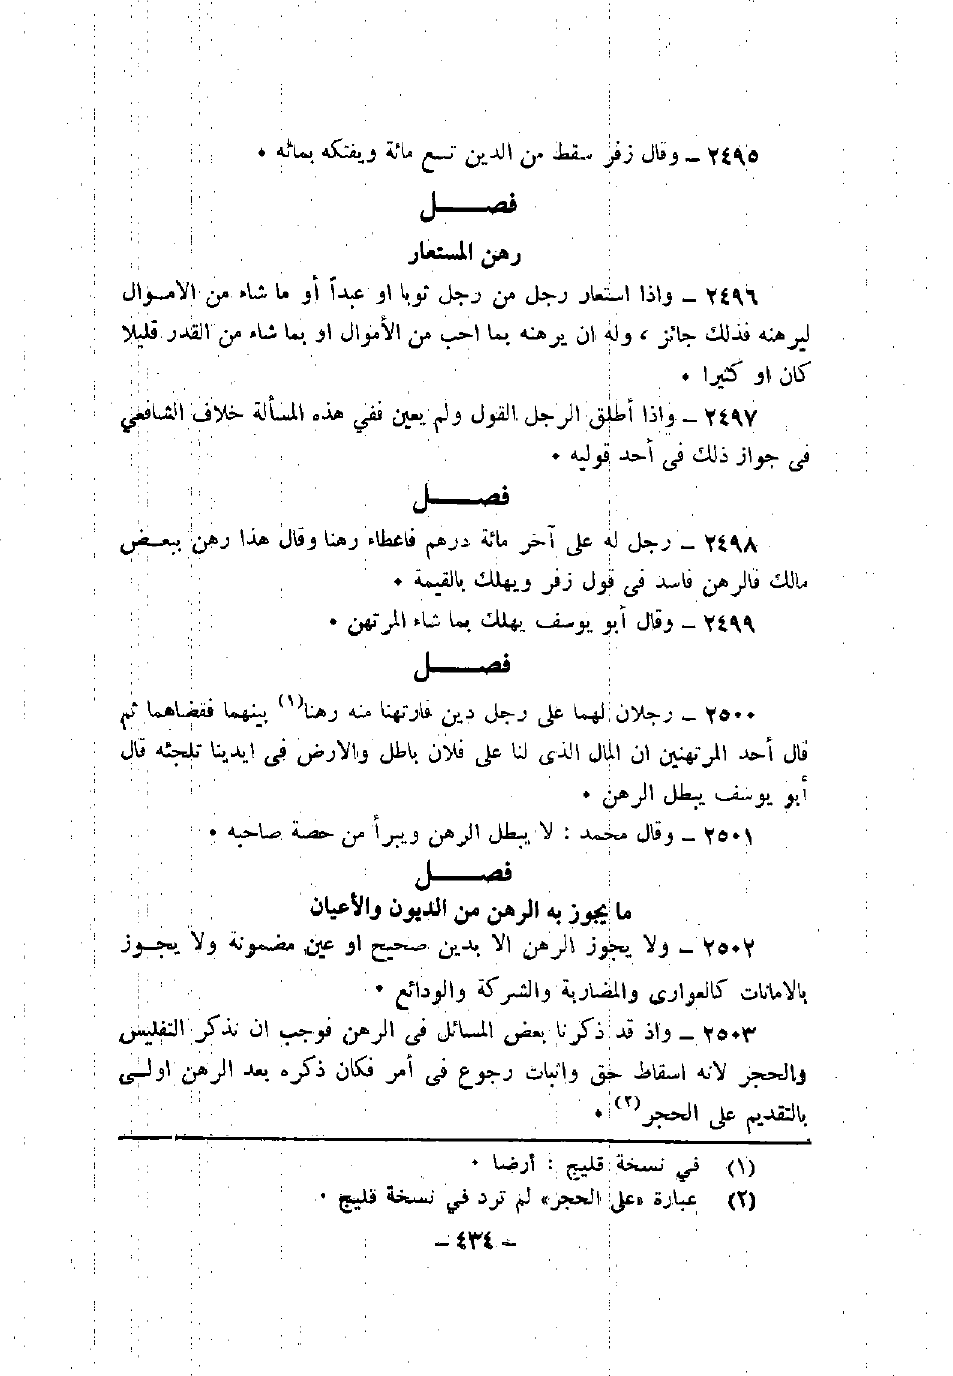 ٢٤٩٥ – وقال زفر سقط من الدين تسع مائة ويفتكه بمائه .
فصـــل
رهن المستعار
٢٤٩٦ – واذا استعار رجل من رجل ثوبا او عبداً أو ما شاء من الاموال
ليرهنه فذلك جائز ، وله ان يرهنه بما احب من الأموال او بما شاء من القدر قليلا
كان او كثيرا .
٢٤٩٧ – واذا أطلق الرجل القول ولم يعين ففي هذه المسألة خلاف الشافعي
فى جواز ذلك فى أحد قوليه .
فصـــل
٢٤٩٨ – رجل له على آخر مائة درهم فاعطاء رهنا وقال هذا رهن ببعـض
مالك فالرهن فاسد فى قول زفر ويهلك بالقيمة .
٢٤٩٩ – وقال أبو يوسف يهلك بما شاء المرتهن .
فصـــل
٢٥٠٠ – رجلان لهما على رجل دين فارتهنا منه رهنا(١) بينهما فقضاهما ثم
قال أحد المرتهنين ان المال الذى لنا على فلان باطل والارض فى ايدينا تلجئه قال
أبو يوسف يبطل الرهن .
٢٥٠١ – وقال محمد : لا يبطل الرهن ويبرأ من حصة صاحبه .
فصـــل
ما يجوز به الرهن من الديون والأعيان
٢٥٠٢ – ولا يجوز الرهن الا بدين صحيح او عين مضمونة ولا يجـوز
بالامانات كالعوارى والمضاربة والشركة والودائع .
٢٥٠٣ – واذ قد ذكرنا بعض المسائل فى الرهن فوجب ان نذكر التفليس
والحجر لانه اسقاط حق واثبات رجوع فى أمر فكان ذكره بعد الرهن اولـى
بالتقديم على الحجر(٢) .
(١) في نسخة قليج : أرضا .
(٢) عبارة «على الحجر» لم ترد في نسخة قليج .
– ٤٣٤ –